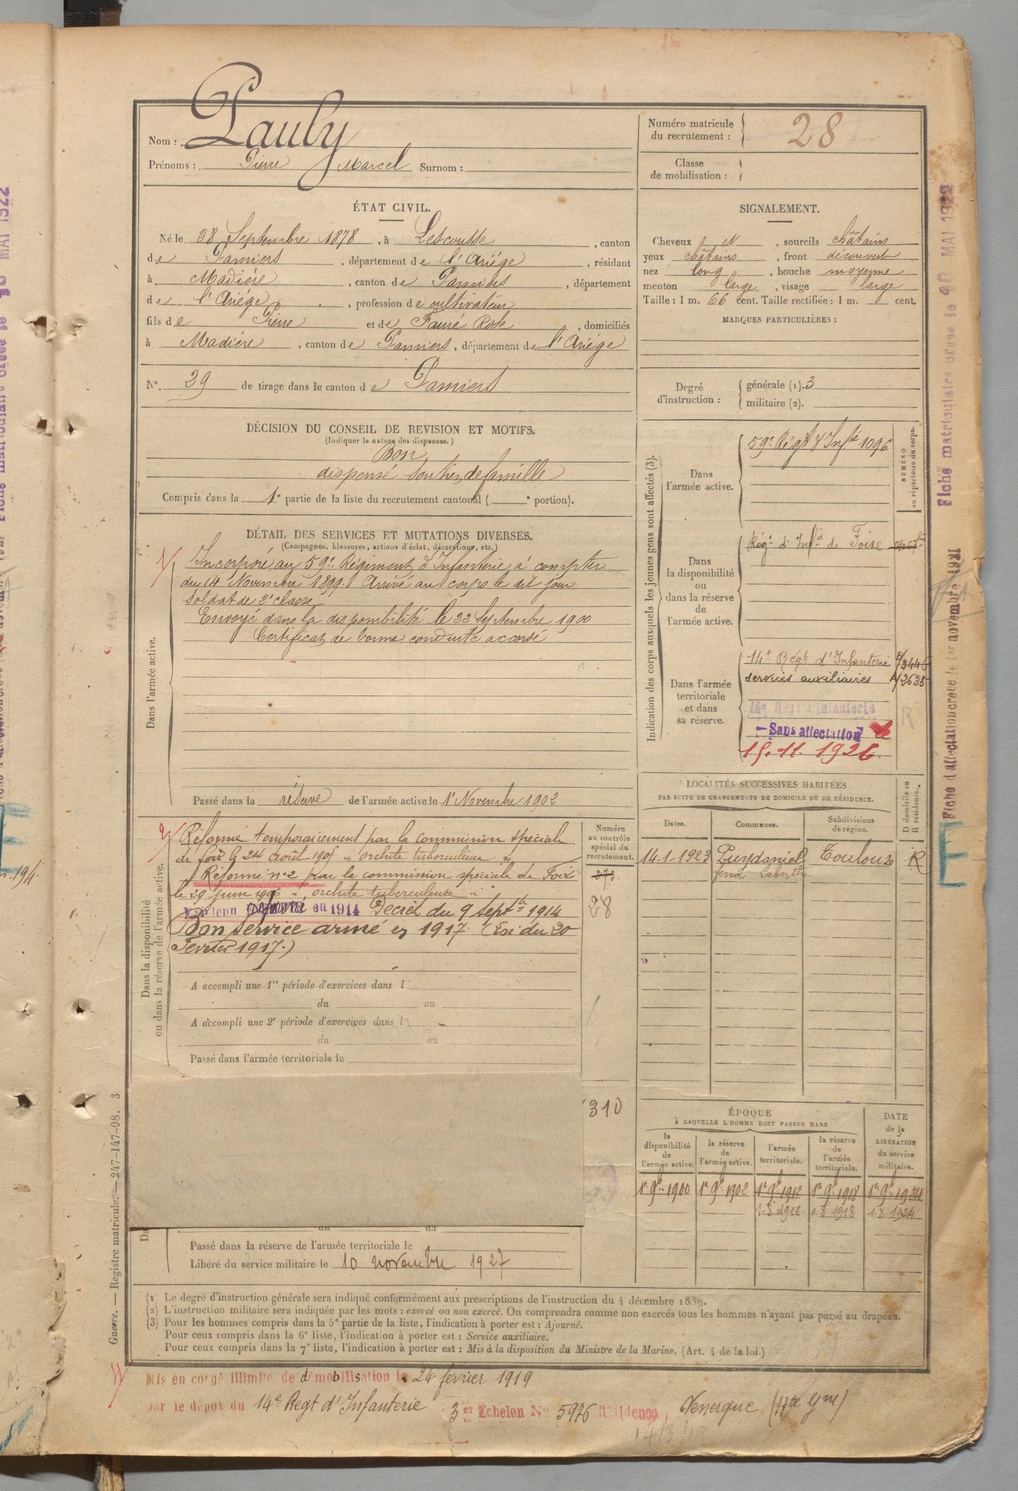 Nom : Pauly
Prénoms : Pierre Marcel Surnom :
Numéro matricule du recrutement : 28
Classe de mobilisation :
ÉTAT CIVIL.
Né le 28 Septembre 1878, à Lescousse, canton
de Pamiers, département de l'Ariège, résidant
à Madière, canton de Pamiers, département
de l'Ariège, profession de cultivateur
fils de Pierre et de Fauré Rose, domiciliés
à Madière, canton de Pamiers, département de l'Ariège
N°. 29 de tirage dans le canton de Pamiers
SIGNALEMENT.
Cheveux N, sourcils châtains
yeux châtains, front découvert
nez long, bouche moyenne
menton large, visage large
Taille : 1 m. 66 cent. Taille rectifiée : 1 m. cent.
MARQUES PARTICULIÈRES :
Degré d'instruction : générale (1). 3
militaire (2).
DÉCISION DU CONSEIL DE REVISION ET MOTIFS.
(Indiquer la nature des dispenses.)
Bon
dispensé soutien de famille
Compris dans la 1e partie de la liste du recrutement cantonal ( e portion).
DÉTAIL DES SERVICES ET MUTATIONS DIVERSES.
(Campagnes, blessures, actions d'éclat, décorations, etc.)
Dans l'armée active.
Incorporé au 59e Régiment d'Infanterie à compter
du 14 Novembre 1899. Arrivé au corps le dit jour
soldat de 2e classe
Envoyé dans la disponibilité le 22 Septembre 1900
Certificat de bonne conduite accordé
Passé dans la réserve de l'armée active le 1er Novembre 1902
Indication des corps auxquels les jeunes gens sont affectés (3).
NUMÉRO au répertoire du corps.
Dans l'armée active.
59e Régt d'Infie 1096
Dans la disponibilité ou dans la réserve de l'armée active.
Régt d'Infie de Foix
Dans l'armée territoriale et dans sa réserve.
14e Régt d'Infanterie
services auxiliaires
14e Régt d'Infanterie
Sans affectation
15.11.1926
Dans la disponibilité ou dans la réserve de l'armée active.
Réformé temporairement par la commission spéciale
de Foix le 24 août 1905 "orchite tuberculeuse"
Réformé n°2 par la commission spéciale de Foix
le 29 juin "orchite tuberculeuse"
Maintenu en 1914 Décret du 9 septbre 1914
Bon service armé en 1917. (Loi du 20
Février 1917.)
Numéro au contrôle spécial du recrutement.
28
310
A accompli une 1re période d'exercices dans l
du au
A accompli une 2e période d'exercices dans l
du au
Passé dans l'armée territoriale le
LOCALITÉS SUCCESSIVES HABITÉES
PAR SUITE DE CHANGEMENTS DE DOMICILE OU DE RÉSIDENCE.
Dates. Communes. Subdivisions de région. D domicile ou R résidence.
14-1-1923 Puydaniel Toulouse R
ÉPOQUE
A LAQUELLE L'HOMME DOIT PASSER DANS
DATE de la LIBÉRATION du service militaire.
la disponibilité de l'armée active. la réserve de l'armée active. l'armée territoriale. la réserve de l'armée territoriale.
1er 9bre 1900 1er 9bre 1902 1er 9bre 1912 1er 9bre 1918 1er 9bre 1924
1.8.1912 1.8.1918 1.8.1924
Passé dans la réserve de l'armée territoriale le
Libéré du service militaire le 10 novembre 1927
(1) Le degré d'instruction générale sera indiqué conformément aux prescriptions de l'instruction du 4 décembre 1889.
(2) L'instruction militaire sera indiquée par les mots : exercé ou non exercé. On comprendra comme non exercés tous les hommes n'ayant pas passé au drapeau.
(3) Pour les hommes compris dans la 5e partie de la liste, l'indication à porter est : Ajourné.
Pour ceux compris dans la 6e liste, l'indication à porter est : Service auxiliaire.
Pour ceux compris dans la 7e liste, l'indication à porter est : Mis à la disposition du Ministre de la Marine. (Art. 4 de la loi.)
Mis en congé illimité de démobilisation le 24 février 1919
par le dépôt du 14e Regt d'Infanterie 3er Echelon No 5976 Résidence Venerque (Hte Gne)
Guerre. — Registre matricule. — 247-147-08. 3
Fiche d'affectation créée le 1er novembre 1921
Fiche matriculaire créée le MAI 1922